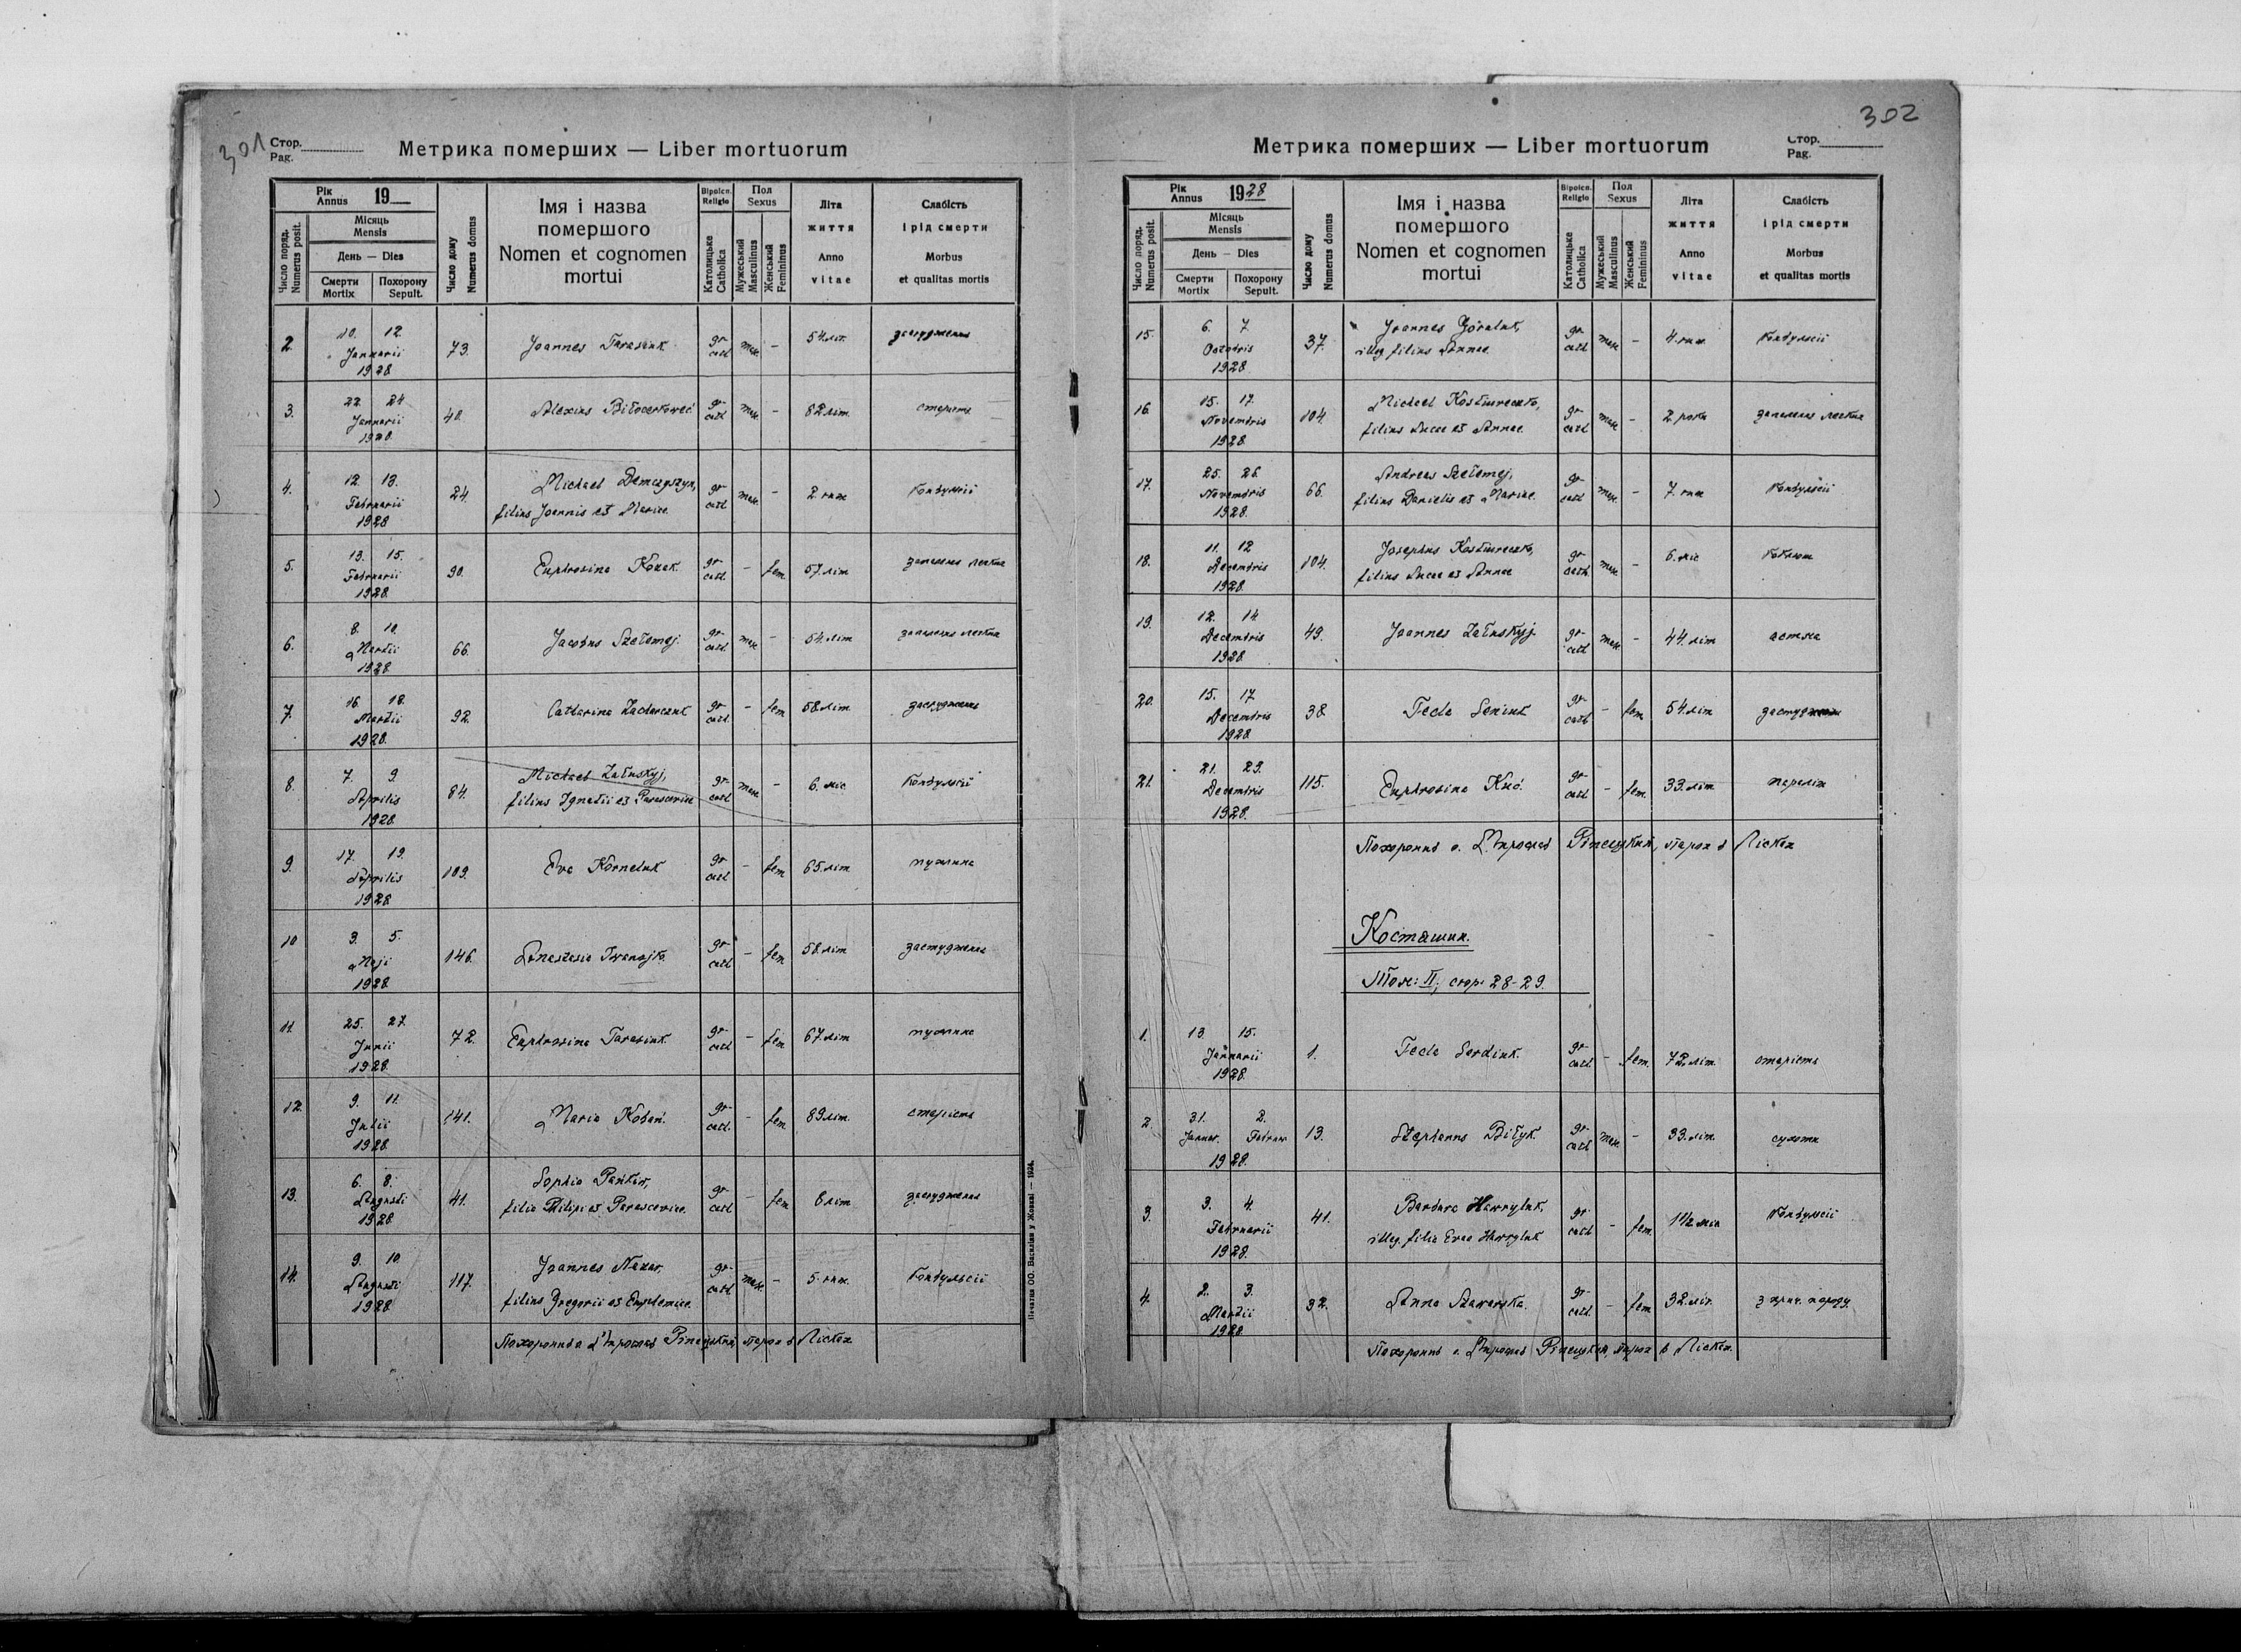 301
Стор.
Pag.
Метрика померших — Liber mortuorum
Рік
Annus 19
Число поряд.
Numerus posit.
Місяць
Mensis
День — Dies
Смерти
Mortix
Похорону
Sepult.
Число дому
Numerus domus
Імя і назва
помершого
Nomen et cognomen
mortui
Віроісп.
Religio
Католицьке
Catholica
Пол
Sexus
Мужеський
Masculinus
Женський
Femininus
Літа
життя
Anno
vitae
Слабість
і рід смерти
Morbus
et qualitas mortis
2. 10. 12. 73. Joannes Tarasiuk gr. masc. - 54 літ. застудженнє
Januarii cath.
1928
3. 22. 24 48. Alexius Biłocerkoweć gr. masc. - 82 літ. старість
Januarii cath.
1928.
4. 12. 13. 24. Michael Demczyszyn, gr. masc. - 2. рик
Februarii filius Joannis et Mariae. cath.
1928
5. 13. 15. 90. Euphrosina Kozak. gr. - fem. 57. літ запаленє легких
Februarii cath.
1928.
6. 8. 10. 66. Jacobus Szełemej. gr. masc. - 54. літ запаленє легких
Martii cath.
1928
7. 16. 18. 92. Catharina Zacharczuk gr. - fem 58. літ застудженнє
Martii cath.
1928.
8. 7. 9. 84. Michael Załuskyj, gr. masc. - 6. міс. конвульсії
Aprilis filius Ignatii et Parasceviae cath.
1928.
9. 17. 19. 109. Eva Korneluk gr. - fem 65. літ пухлина
Aprilis cath.
1928
10 3. 5. 146. Anastasia Iwanojko. gr. - fem 58. літ застудженнє
Maji cath.
1928.
11. 25. 27. 72. Euphrosina Tarasiuk. gr. - fem 67. літ пухлина
Junii cath.
1928.
12. 9. 11. 141. Maria Kobań. gr. - fem 89 літ. старість
Julii cath.
1928.
13. 6. 8. 41. Sophia Pańkiw, gr. - fem 8 літ застудженнє
Augusti filia Philipi et Parasceviae. cath.
1928.
14. 9. 10. 117. Joannes Nazar, gr. masc. - 5. конвульсії
Augusti filius Gregorii et Euphemiae. cath.
1928
Похоронив парох в Лісках
Печатня ОО. Василіян у Жовкві — 1924.
302
Метрика померших — Liber mortuorum
Стор.
Pag.
Рік
Annus 1928
Число поряд.
Numerus posit.
Місяць
Mensis
День — Dies
Смерти
Mortix
Похорону
Sepult.
Число дому
Numerus domus
Імя і назва
помершого
Nomen et cognomen
mortui
Віроісп.
Religio
Католицьке
Catholica
Пол
Sexus
Мужеський
Masculinus
Женський
Femininus
Літа
життя
Anno
vitae
Слабість
і рід смерти
Morbus
et qualitas mortis
15. 6. 7. 37. Joannes Góraluk, gr. masc. - 4. конвульсії
Octobris illeg. filius Annae. cath.
1928.
16. 15. 17. 104. Michael Kostureczko, gr. masc. - 2 роки запаленє легких
Novembris filius Lucae et Annae. cath.
1928.
17. 25. 26. 66. Andreas Szełemej, gr. masc. - 7. конвульсії
Novembris filius Danielis et Mariae. cath.
1928.
18. 11. 12 104. Josephus Kostureczko, gr. masc. - 6. міс коклюш
Decembris filius Lucae et Annae cath.
1928.
19. 12. 14. 49. Joannes Załuskyj. gr. masc. - 44. літ астма
Decembris cath.
1928.
20. 15. 17. 38. Tecla Seniuk gr. - fem. 54. літ застудженнє
Decembris cath.
1928
21. 21. 23. 115. Euphrosina Kuć. gr. - fem. 33. літ
Decembris cath.
1928.
Похоронив о. парох в Лісках
Косташин.
Том: II; стор. 28-29.
1. 13 15. 1. Tecla Serdiuk. gr. - fem. 72. літ. старість
Januarii cath.
1928.
2 31. 2. 13. Stephanus Biłyk. gr. masc. - 33. літ. сухоти
Januar. Februar. cath.
1928.
3. 3. 4. 41. Barbara Hawryluk, gr. - fem. 1½ конвульсії
Februarii illeg. filia Evae Hawryluk cath.
1928.
4. 2. 3. 32. Anna Stawarska. gr. - fem 32. літ. з прич. породу.
Martii cath.
1928.
Похоронив о. парох в Лісках.